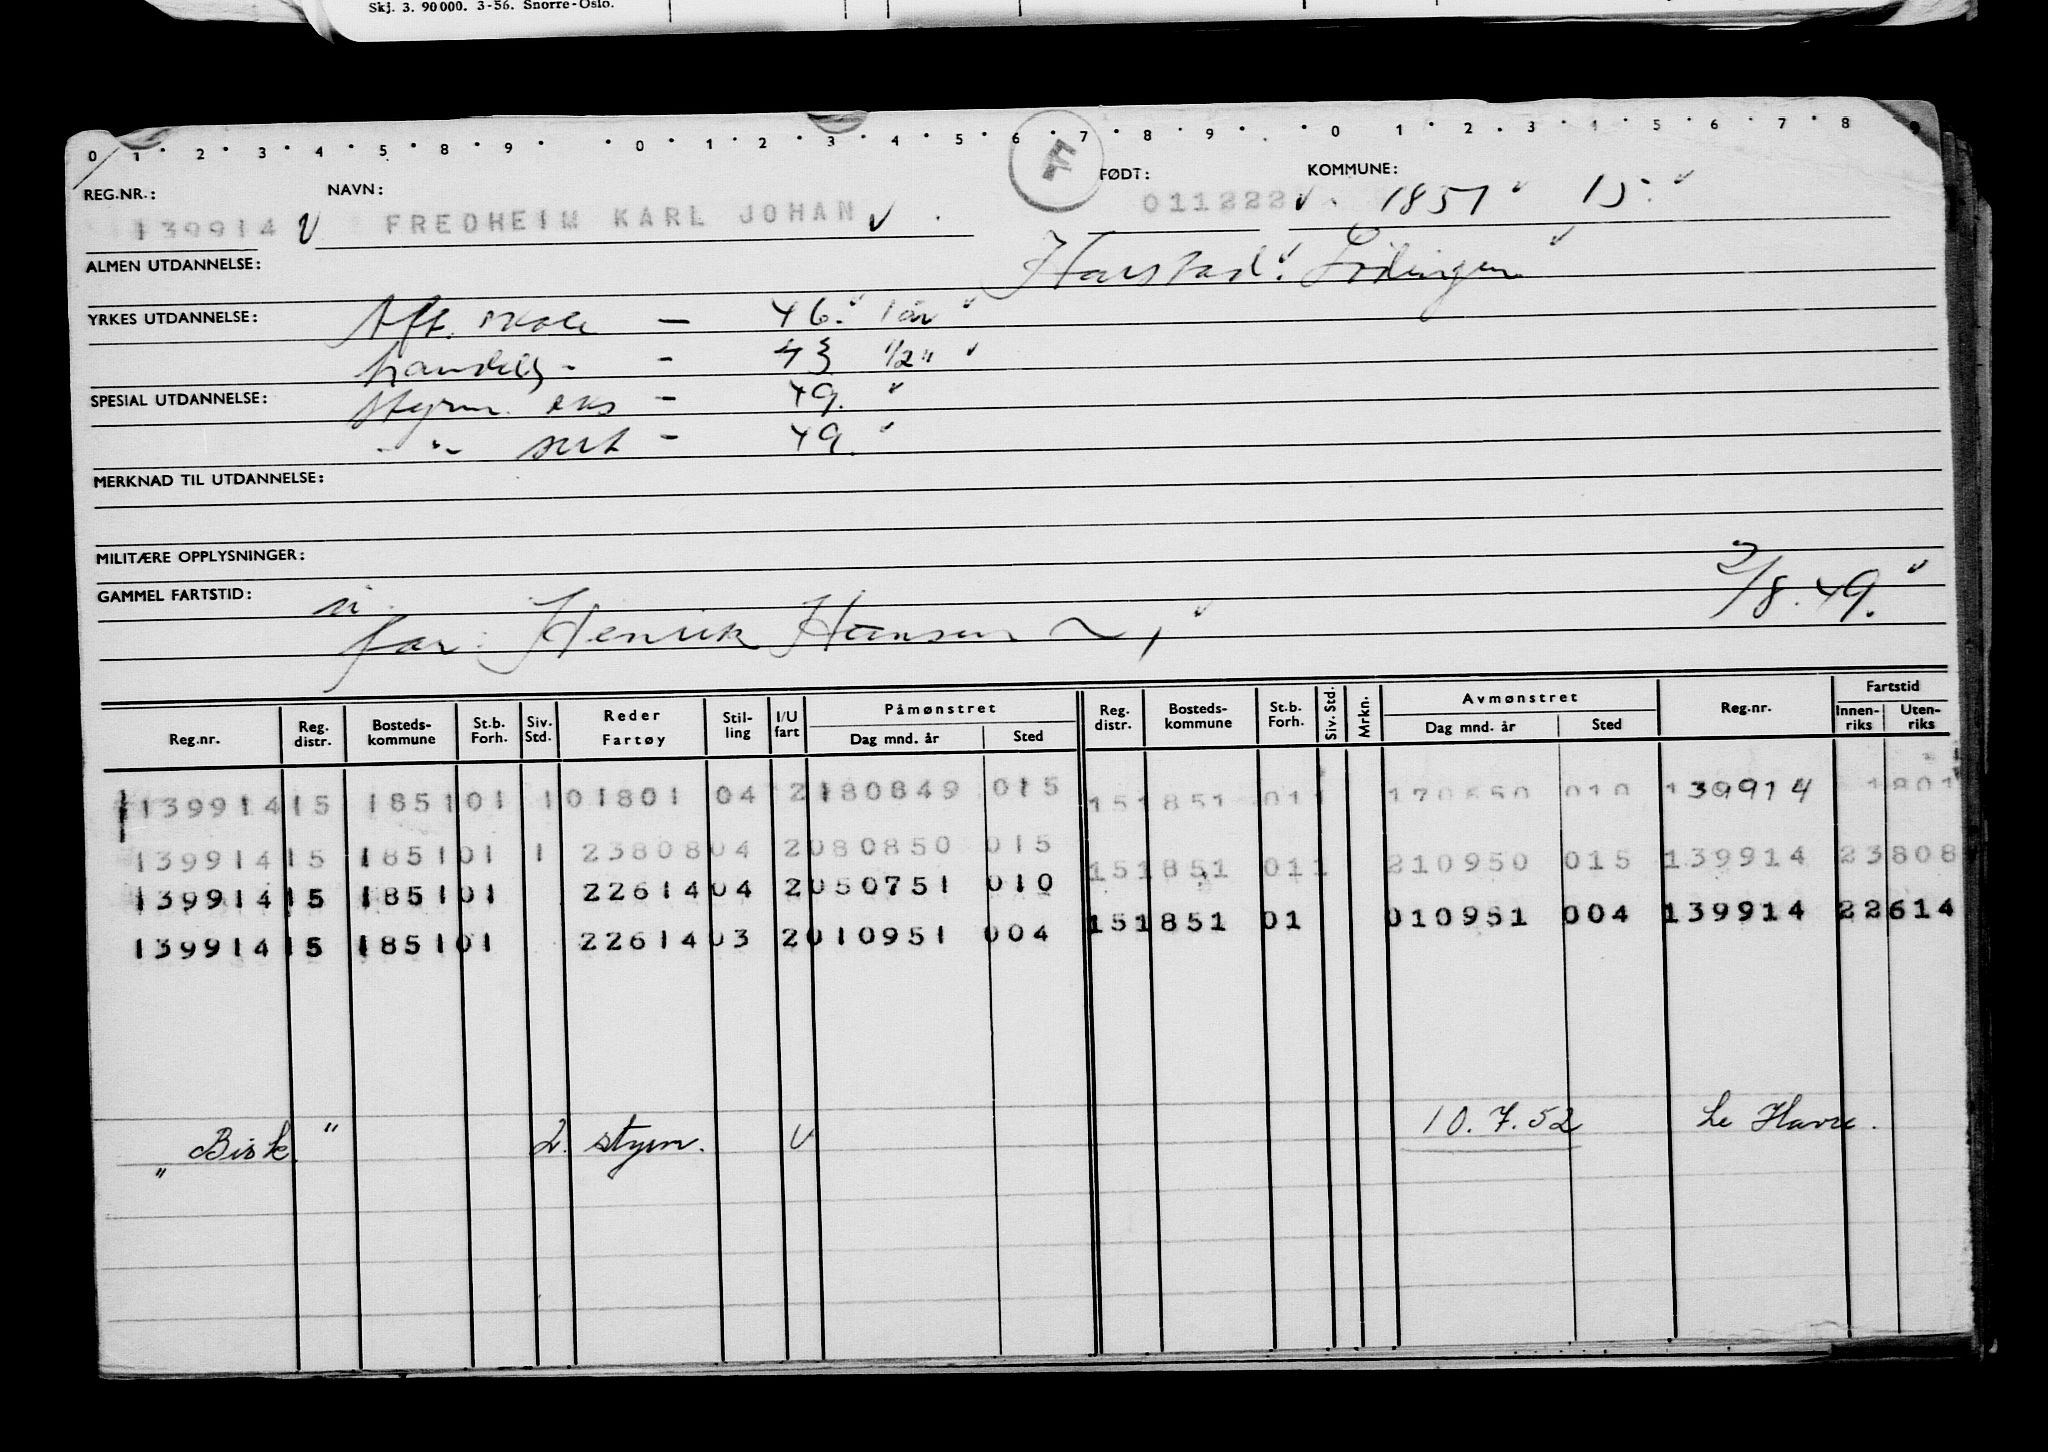 Skj. 3. 90000. 3-56. Snorre-Oslo.
0 1 2 3 4 5 8 9 0 1 2 3 4 5 6 7 8 9 0 1 2 3 4 5 6 7 8 9
REG.NR.: NAVN: F FØDT: KOMMUNE:
139914 FREDHEIM KARL JOHAN 011222 1851 15
ALMEN UTDANNELSE: Harstad. Lödingen
YRKES UTDANNELSE: Aft. skole — 46. 1 år
handels - - 43 1/2 "
SPESIAL UTDANNELSE: styrm. eks - 49.
- " - sert - 49.
MERKNAD TIL UTDANNELSE:
MILITÆRE OPPLYSNINGER:
GAMMEL FARTSTID: /8.49.
far: Henrik Hansen
Reg.nr. Reg. distr. Bosteds-kommune St.b. Forh. Siv. Std. Reder Fartøy Stil-ling I/U fart Påmønstret Dag mnd. år Sted Reg. distr. Bosteds-kommune St.b. Forh. Siv. Std. Mrkn. Avmønstret Dag mnd. år Sted Reg.nr. Fartstid Innen-riks Uten-riks
139914 15 1851 01 1 01801 04 2 180849 015 15 1851 01 1 170650 010 139914 1801
139914 15 1851 01 1 23808 04 2 080850 015 15 1851 01 1 210950 015 139914 23808
139914 15 1851 01 22614 04 2 050751 010 15 1851 01 010951 004 139914 22614
139914 15 1851 01 22614 03 2 010951 004
„Bisk" 2. styrm. U 10.7.52 Le Havre.